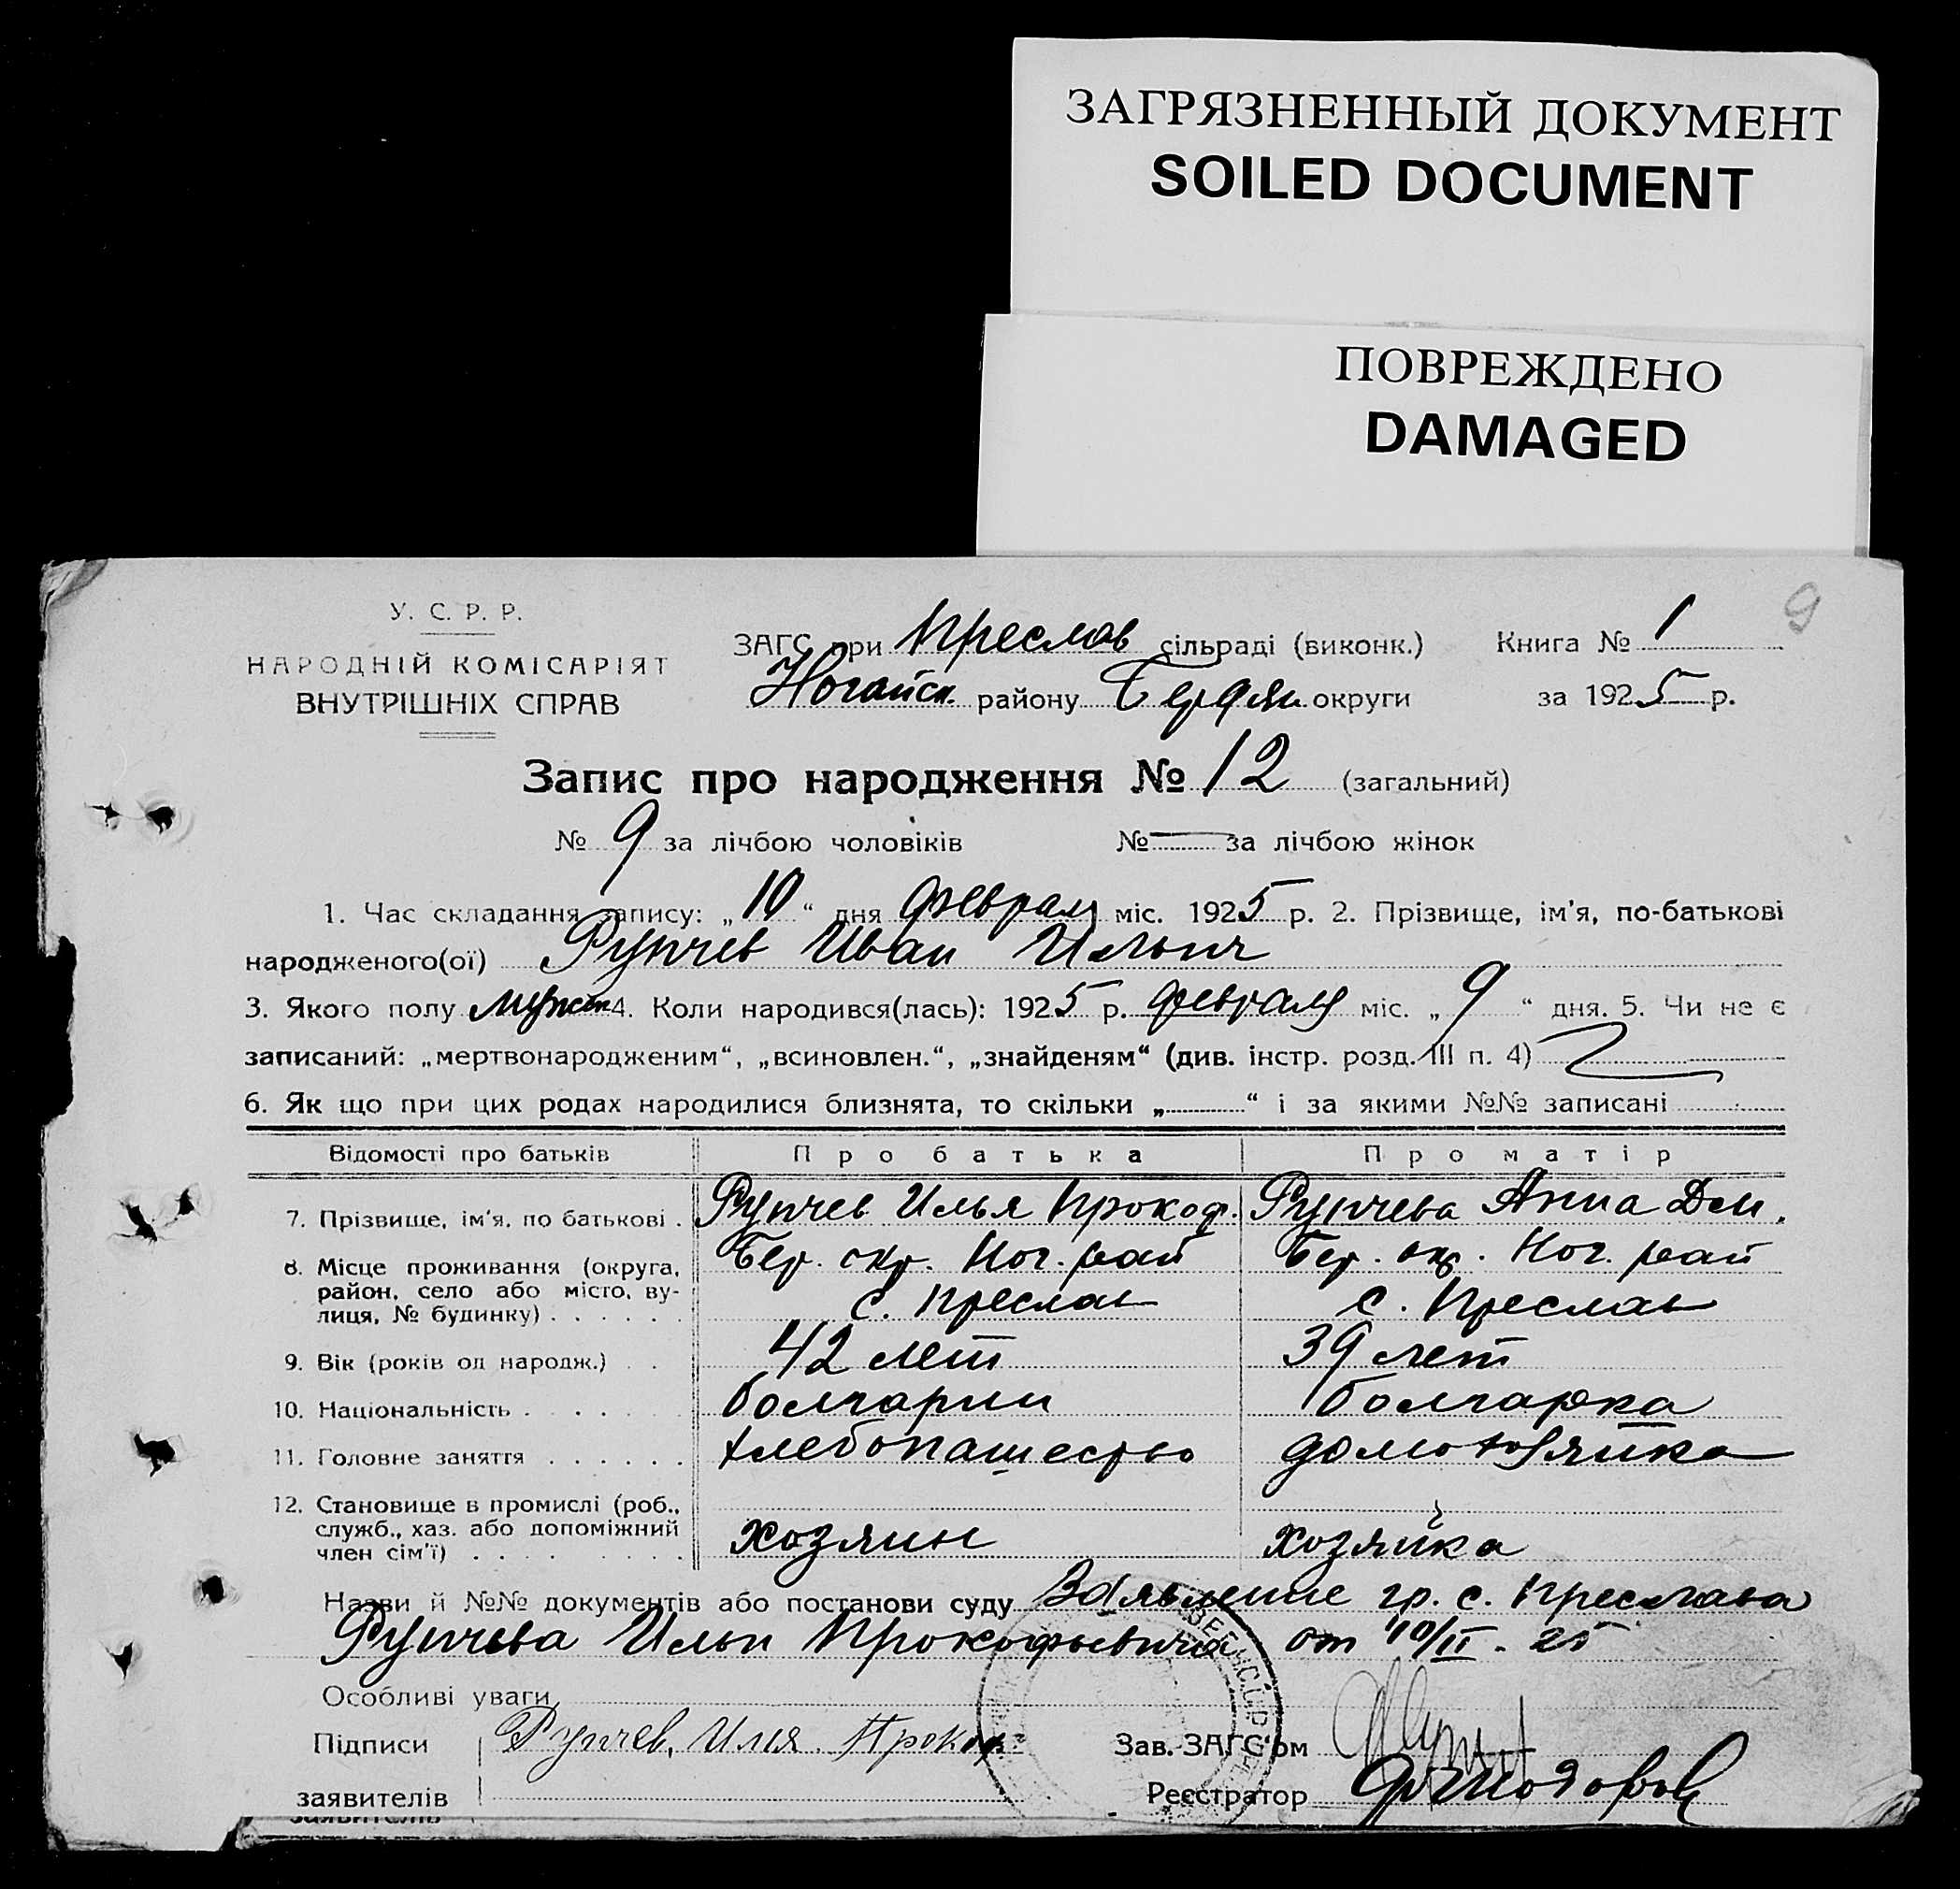 ЗАГРЯЗНЕННЫЙ ДОКУМЕНТ
SOILED DOCUMENT
ПОВРЕЖДЕНО
DAMAGED
9
У. С. Р. Р.
НАРОДНІЙ КОМІСАРІЯТ
ВНУТРІШНІХ СПРАВ
ЗАГС при Преслав сільраді (виконк.) Книга № 1
Ногайск. району Бердян округи за 1925 р.
Запис про народження № 12 (загальний)
№ 9 за лічбою чоловіків № — за лічбою жінок
1. Час складання запису: „10“ дня февраля міс. 1925 р. 2. Прізвище, ім'я, по-батькові
народженого(ої) Рупчев Иван Ильич
3. Якого полу мужск 4. Коли народився(лась): 1925 р. февраля міс. „9“ дня. 5. Чи не є
записаний: „мертвонародженим“, „всиновлен.“, „знайденям“ (див. інстр. розд. III п. 4)
6. Як що при цих родах народилися близнята, то скільки „ “ і за якими №№ записані
Відомості про батьків Про батька Про матір
7. Прізвище, ім'я, по батькові . Рупчев Илья Прокоф. Рупчева Анна Дем.
8. Місце проживання (округа, Бер. окр. Ног. рай Бер. окр. Ног. рай
район, село або місто, ву-
лиця, № будинку) . . . . . . с. Преслав с. Преслав
9. Вік (років од народж.) . . 42 лет 39 лет
10. Національність . . . . . . болгарин болгарка
11. Головне заняття . . . . . . хлебопашество домохозяйка
12. Становище в промислі (роб.,
служб., хаз. або допоміжний
член сім'ї) . . . . . . . хозяин хозяйка
Назви й №№ документів або постанови суду Заявление гр. с. Преслава
Рупчева Ильи Прокофьевича от 10/II - 25
Особливі уваги
Підписи Рупчев, Илия. Прокоф. Зав. ЗАГС'ом
заявителів Реєстратор
заявителів